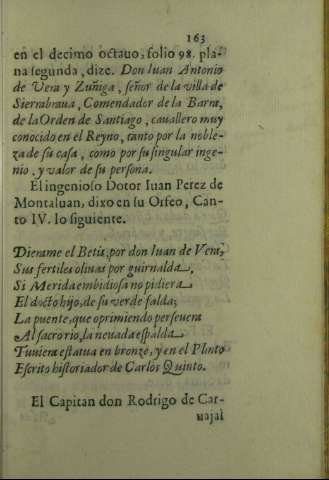 163
en el decimo octauo, folio 98. pla-
na segunda, dize. Don Iuan Antonio
de Vera y Zuñiga, señor de la villa de
Sierrabraua, Comendador de la Barra,
de la Orden de Santiago, cauallero muy
conocido en el Reyno, tanto por la noble-
za de su casa, como por su singular inge-
nio, y valor de su persona.
El ingenioso Dotor Iuan Perez de
Montaluan, dixo en su Orfeo, Can-
to IV. lo siguiente.
Dierame el Betis, por don Iuan de Vera,
Sus fertiles oliuas por guirnalda,
Si Merida embidiosa no pidiera
El docto hijo, de su verde falda;
La puente, que oprimiendo perseuera
Al sacro rio, la neuada espalda
Tuuiera estatua en bronze, y en el Plinto
Escrito historiador de Carlos Quinto.
El Capitan don Rodrigo de Car-
uajal